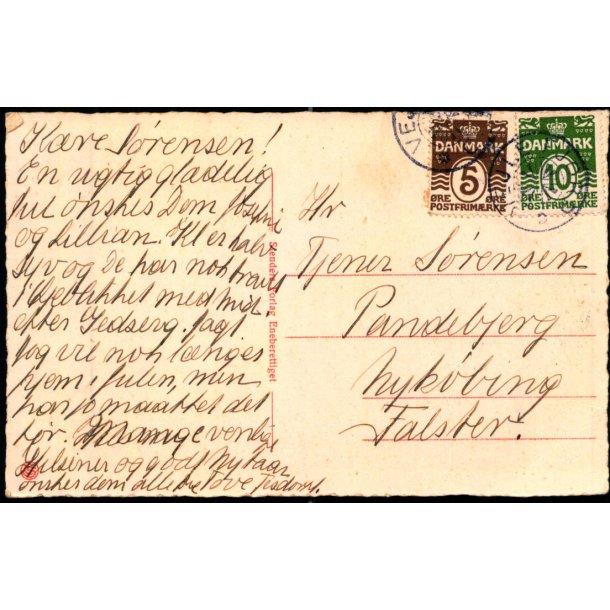 Kære Sørensen!
En rigtig glædelig
jul ønskes Dem
og Lillian. Kl er halv
syv og De har nok travlt
med mid
efter Gedserg.
jeg vil nok længes
hjem i Julen, men
har jo maattet det
før. Mange venlige
Hilsener og godt Nytaar
ønskes dem alle Tove
Stenders Forlag Eneberettiget
DANMARK
5
ØRE ØRE
POSTFRIMÆRKE
DANMARK
10
ØRE ØRE
POSTFRIMÆRKE
Hr
Tjener Sørensen
Pandebjerg
Nykøbing
Falster.